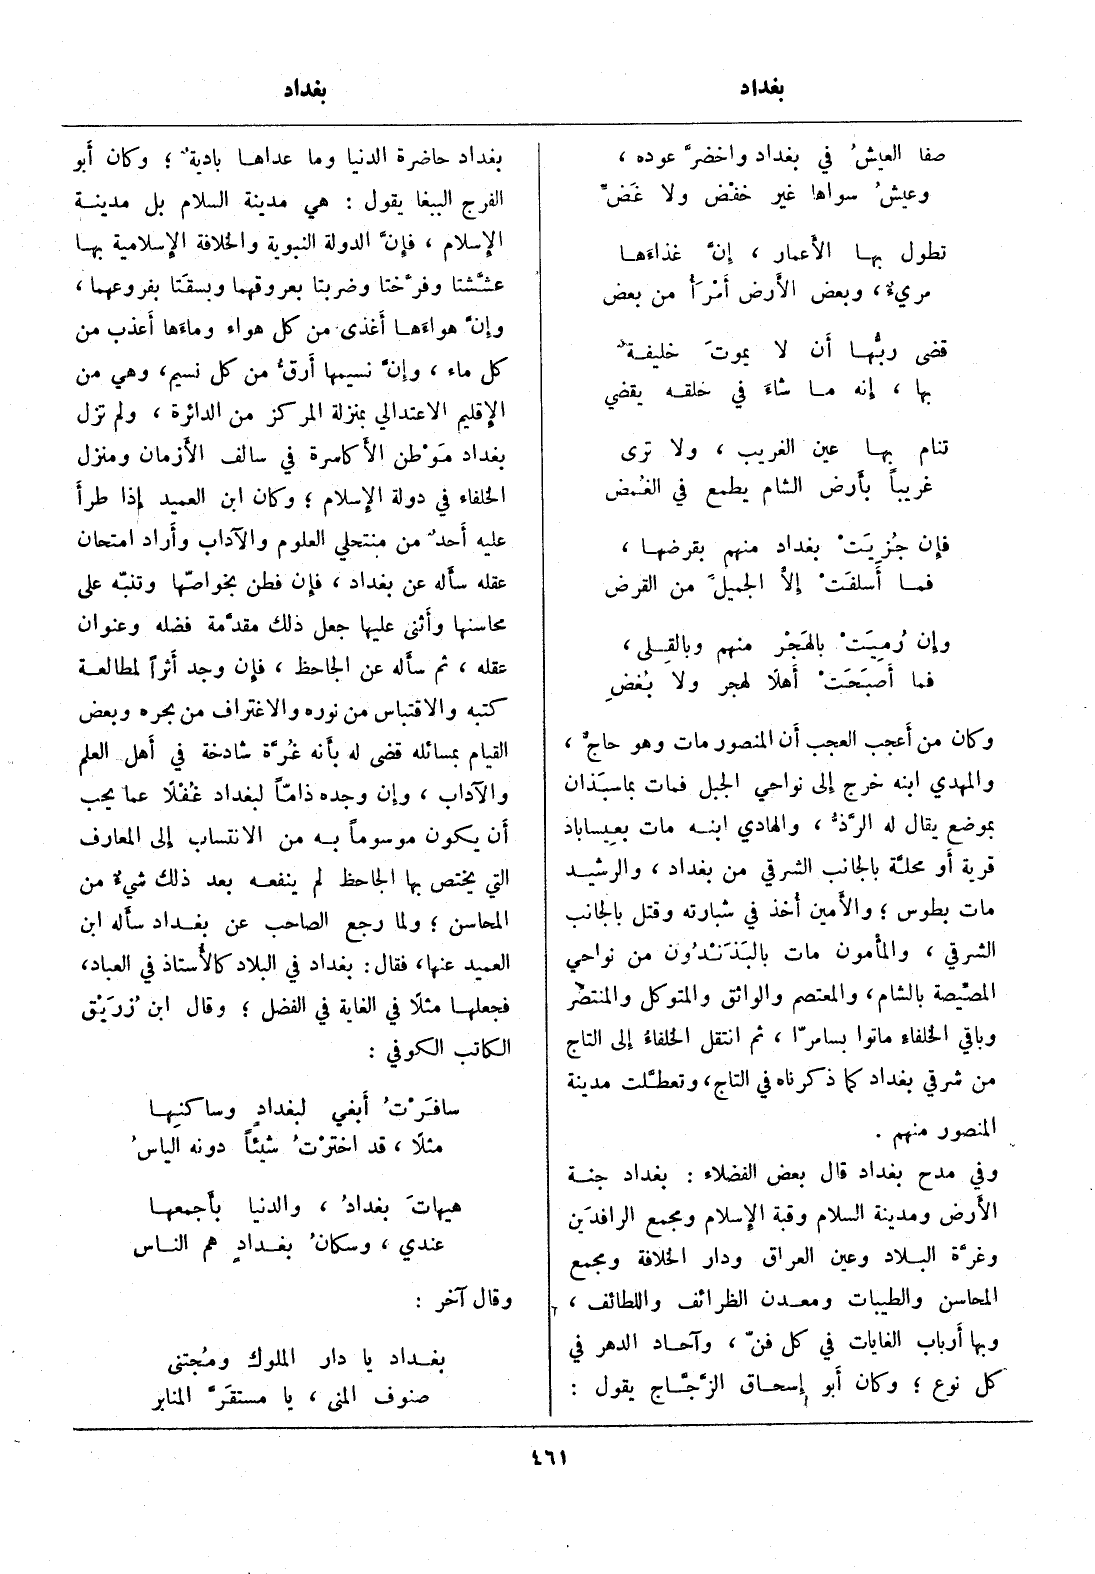 بغداد
بغداد
صفا العيشُ في بغداد واخضرَّ عوده ،
وعيشُ سواها غير خفْض ولا غَضّ
تطول بها الأعمار ، إنَّ غذاءها
مريءٌ ، وبعض الأرض أمْرَأُ من بعض
قضى ربُّها أن لا يموتَ خليفةٌ
بها ، إنه ما شاءَ في خلقه يقضي
تنام بها عين الغريب ، ولا ترى
غريباً بأرض الشام يطمع في الغُمض
فإن جُزيَتْ بغداد منهم بقرضها ،
فما أَسلفَتْ إلاّ الجميلَ من القرض
وإن رُميَتْ بالهَجْر منهم وبالقِلى ،
فما أصبَحَتْ أهلًا لهجر ولا بُغضِ
وكان من أعجب العجب أن المنصور مات وهو حاجٌ ،
والمهدي ابنه خرج إلى نواحي الجبل فمات بماسبَذان
بموضع يقال له الرَّذُّ ، والهادي ابنه مات بعيساباد
قرية أو محلة بالجانب الشرقي من بغداد ، والرشيد
مات بطوس ؛ والأمين أُخذ في شبارته وقتل بالجانب
الشرقي ، والمأمون مات بالبَذَنْدُون من نواحي
المصّيصة بالشام، والمعتصم والواثق والمتوكل والمنتصر
وباقي الخلفاء ماتوا بسامرّا ، ثم انتقل الخلفاءُ إلى التاج
من شرقي بغداد كما ذكرناه في التاج، وتعطّلت مدينة
المنصور منهم .
وفي مدح بغداد قال بعض الفضلاء : بغداد جنة
الأرض ومدينة السلام وقبة الإسلام ومجمع الرافدَين
وغرَّة البلاد وعين العراق ودار الخلافة ومجمع
المحاسن والطيبات ومعدن الظرائف واللطائف ،
وبها أرباب الغايات في كل فنّ ، وآحاد الدهر في
كل نوع ؛ وكان أبو إسحاق الزَّجَّاج يقول :
بغداد حاضرة الدنيا وما عداها باديةٌ ؛ وكان أبو
الفرج الببغا يقول : هي مدينة السلام بل مدينة
الإسلام ، فإنَّ الدولة النبوية والخلافة الإسلامية بها
عشَّشتا وفرَّختا وضربتا بعروقهما وبسقَتا بفروعهما ،
وإنَّ هواءَها أغذى من كل هواء وماءَها أعذب من
كل ماء ، وإنَّ نسيمها أرقُّ من كل نسيم، وهي من
الإقليم الاعتدالي بمنزلة المركز من الدائرة ، ولم تزل
بغداد مَوْطن الأكاسرة في سالف الأزمان ومنزل
الخلفاء في دولة الإسلام ؛ وكان ابن العميد إذا طرأ
عليه أحدٌ من منتحلي العلوم والآداب وأراد امتحان
عقله سأله عن بغداد ، فإن فطن بخواصّها وتنبّه على
محاسنها وأثنى عليها جعل ذلك مقدَّمة فضله وعنوان
عقله ، ثم سأله عن الجاحظ ، فإن وجد أثراً لمطالعة
كتبه والاقتباس من نوره والاغتراف من بحره وبعض
القيام بمسائله قضى له بأنه غُرَّة شادخة في أهل العلم
والآداب ، وإن وجده ذامّاً لبغداد غُفْلًا عما يجب
أن يكون موسوماً به من الانتساب إلى المعارف
التي يختص بها الجاحظ لم ينفعه بعد ذلك شيءٌ من
المحاسن ؛ ولما رجع الصاحب عن بغداد سأله ابن
العميد عنها، فقال : بغداد في البلاد كالأُستاذ في العباد،
فجعلها مثلًا في الغاية في الفضل ؛ وقال ابن زُرَيْق
الكاتب الكوفي :
سافَرْتُ أبغي لبغدادٍ وساكنِها
مثلًا ، قد اخترْتُ شيئاً دونه الياسُ
هيهاتَ بغدادُ ، والدنيا بأجمعها
عندي ، وسكانُ بغدادٍ هم الناس
وقال آخر :
بغداد يا دار الملوك ومُجتنى
صنوف المنى ، يا مستقَرَّ المنابر
٤٦١